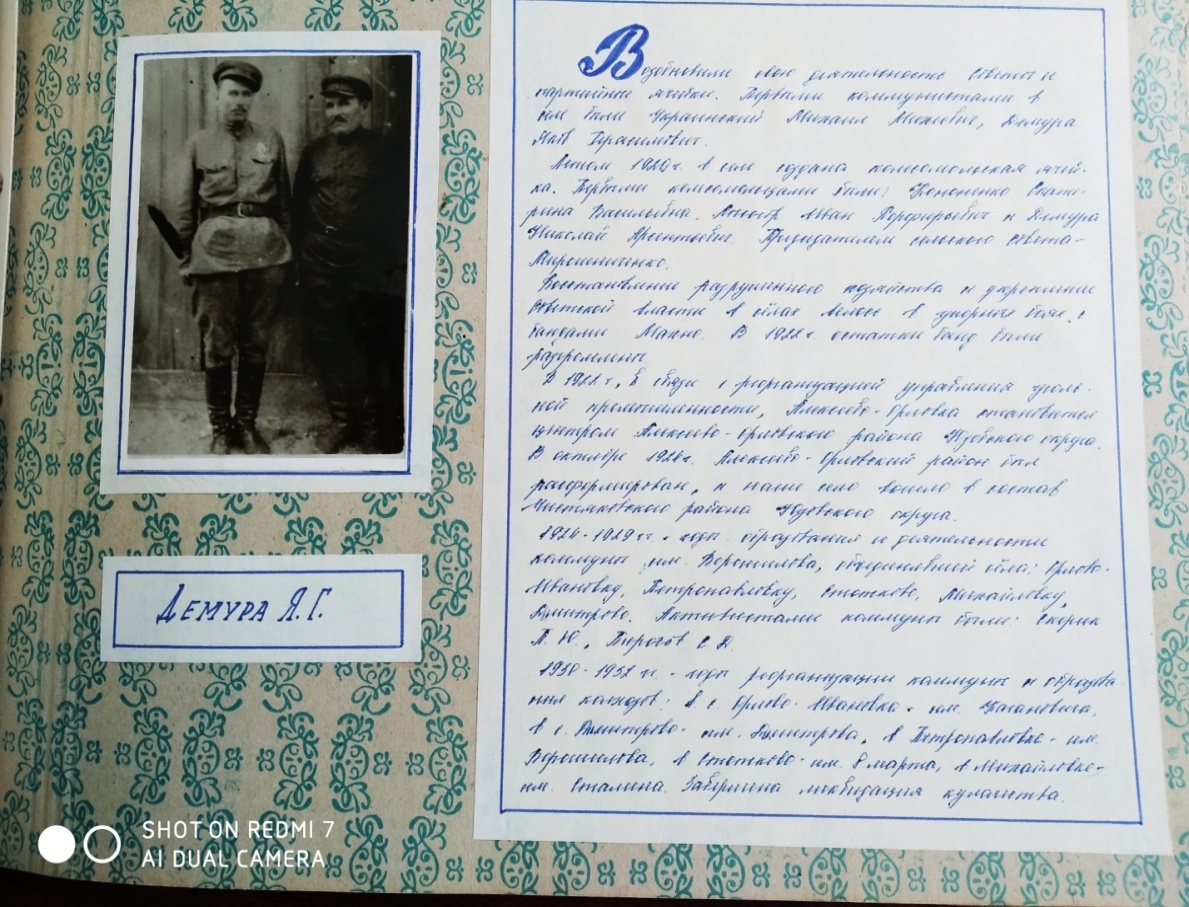 ДЕМУРА Я.Г.
Возобновили свою деятельность Советы и
партийные ячейки. Первыми коммунистами в
селе были Украинский Михаил Михеевич, Демура
Яков Герасимович.
Летом 1920 г. в селе создана комсомольская ячей-
ка. Первыми комсомольцами были: Кононенко Екате-
рина Васильевна, Иван Порфирьевич и Демура
Николай Арсентьевич. Председателем сельского Совета-
Мирошниченко.
Восстановление разрушенного хозяйства и укрепление
Советской власти в сёлах велось в упорных боях с
бандами Махно. В 1922 г. остатки банд были
разгромлены
В 1922 г., в связи с реорганизацией управления уголь-
ной промышленности, Алексеево-Орловка становится
центром Алексеево-Орловского района Юзовского округа.
В октябре Алексеево-Орловский район был
расформирован, и наше село вошло в состав
Чистяковского района Юзовского округа.
- годы образования и деятельности
коммуны им. Ворошилова, объединявшей сёла: Орлово-
Ивановку, Петропавловку, Стожково, Михайловку,
Дмитрово. Активистами коммуны были: Скорик
П. Ю., Пирогов С. Д.
1930-1932 гг. - годы реорганизации коммуны и образова-
ния колхозов: в с. Орлово-Ивановка - им. Кагановича,
в с. Димитрово - им. Димитрова, в Петропавловке - им.
Ворошилова, в Стожково - им. 8 марта, в Михайловке-
им. Сталина. Завершена ликвидация кулачества.
SHOT ON REDMI 7
AI DUAL CAMERA